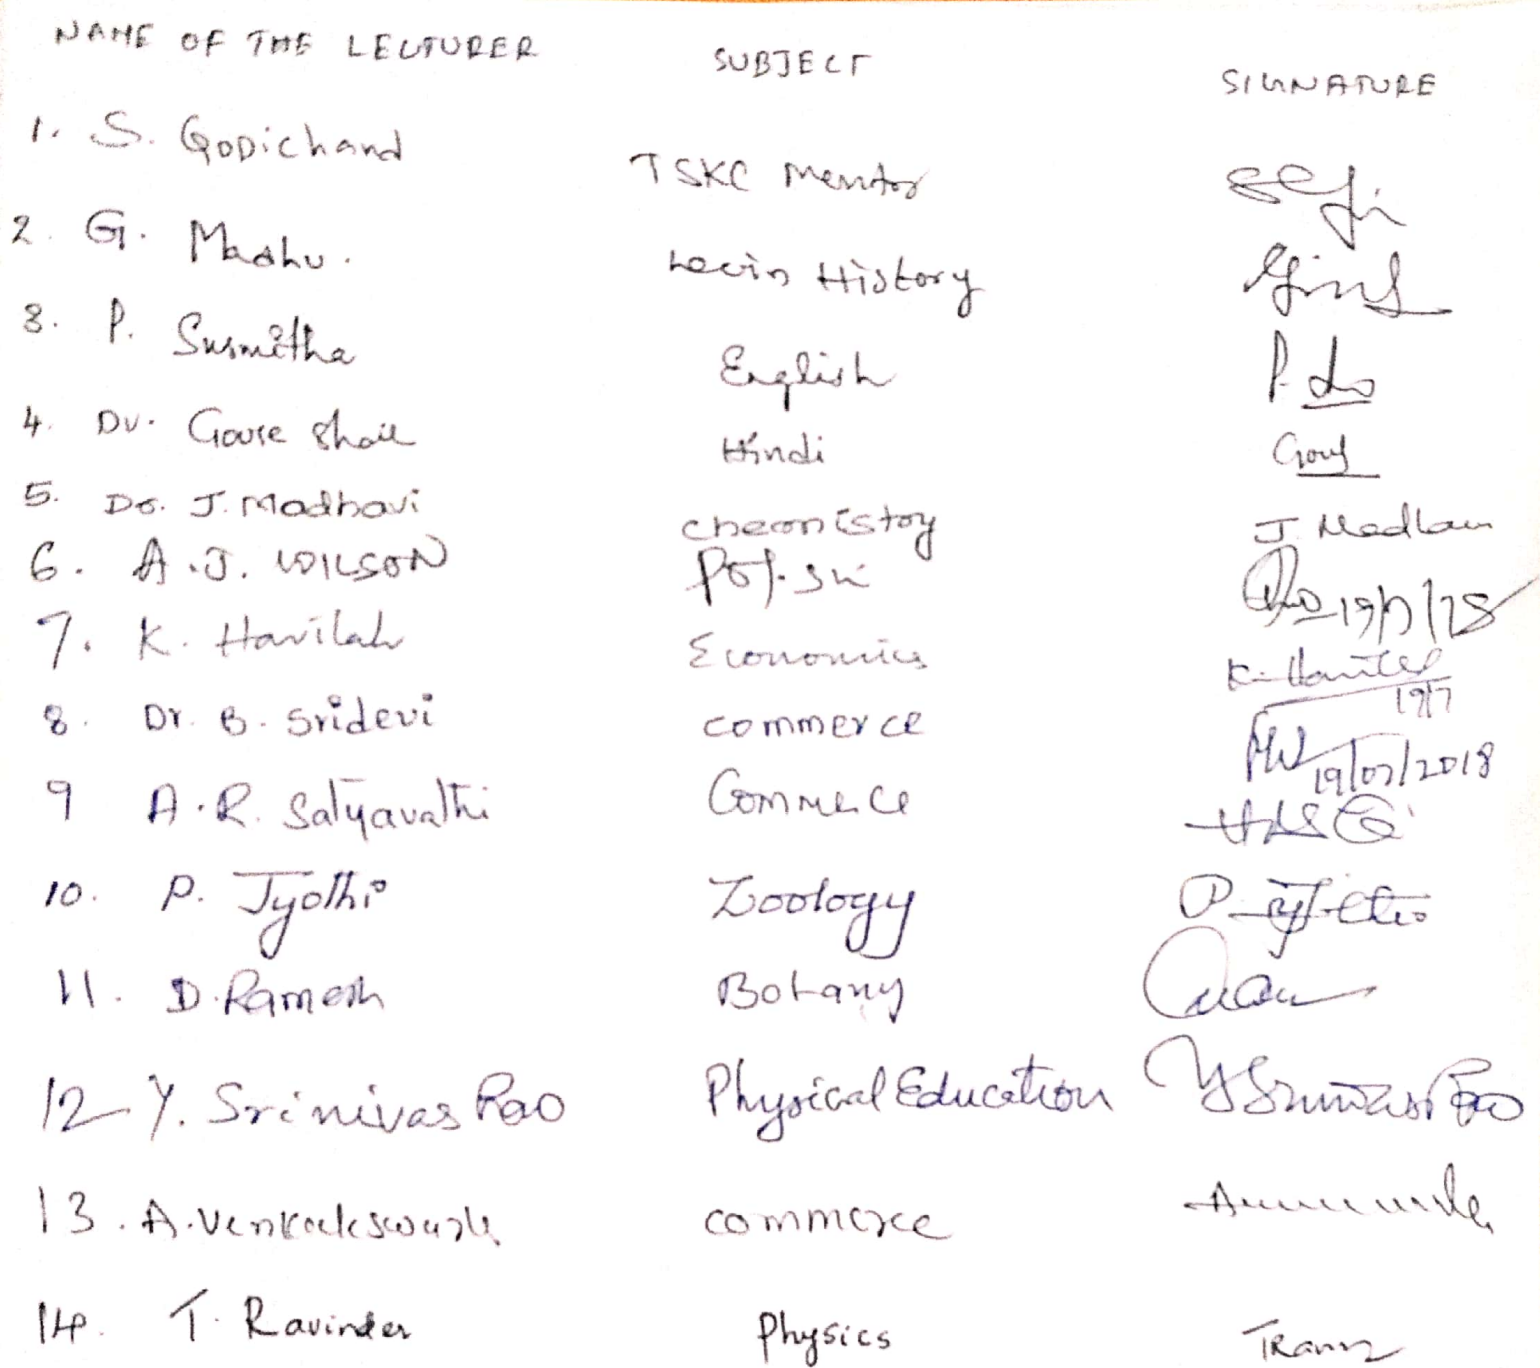 NAME OF THE LECTURER SUBJECT SIGNATURE
1. S. Gopichand TSKC Mentor
2. G. Madhu. History
3. P. Susmitha English
4. Dr. Gouse Shaik Hindi Gous
5. Dr. J. Madhavi chemistry J. Madhavi
6. A.J. WILSON Pol. Sci 19/7/18
7. K. Havilah Economics K. Havilah 19/7
8. Dr. B. Sridevi commerce 19/07/2018
9 A.R. Satyavathi Commerce
10. P. Jyothi Zoology P. Jyothi
11. D. Ramesh Botany
12. Y. Srinivas Rao Physical Education Y Srinivas Rao
13. A. Venkateswarlu commerce
14. T. Ravinder Physics